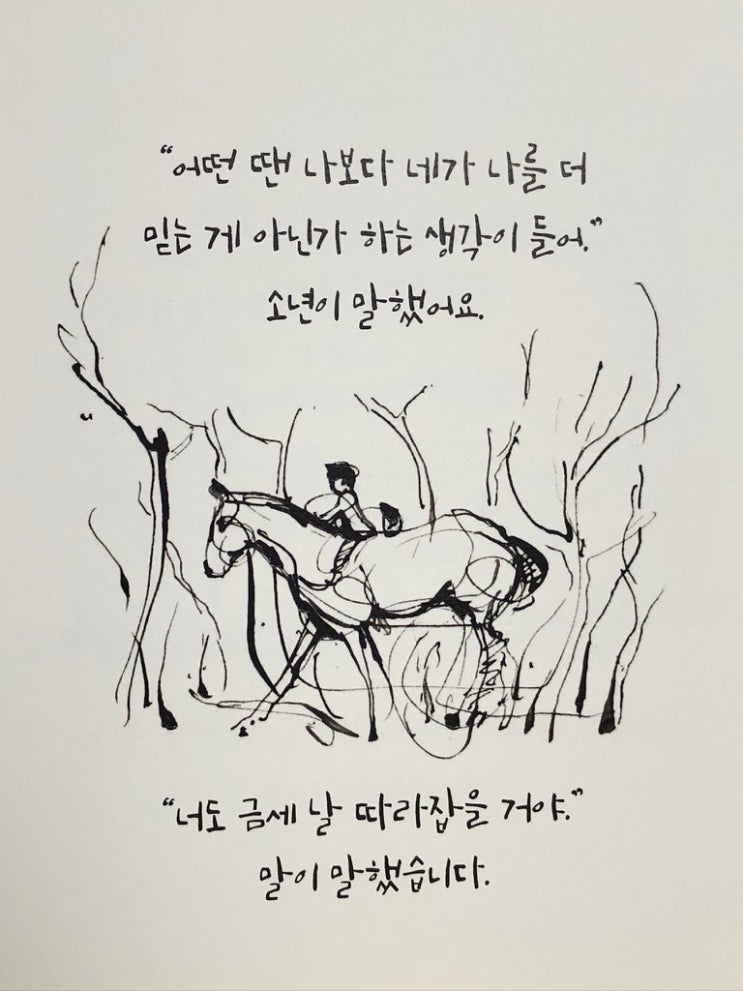 “어떤 땐 나보다 네가 나를 더
믿는 게 아닌가 하는 생각이 들어.”
소년이 말했어요.
“너도 금세 날 따라잡을 거야.”
말이 말했습니다.